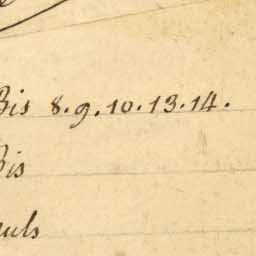 Bis 8.9.10.13.14.
Bis